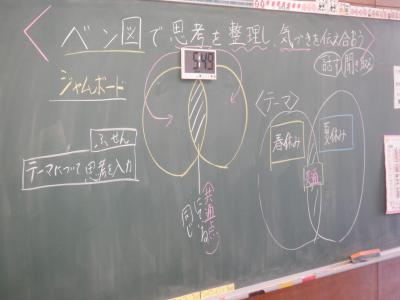 ベン図で思考を整理し、気づきを伝え合おう
話す 聞き取る
ジャムボード
ふせん
テーマについて思考を入力
共通点
にている
同じ
〈テーマ〉
春休み
夏休み
共通